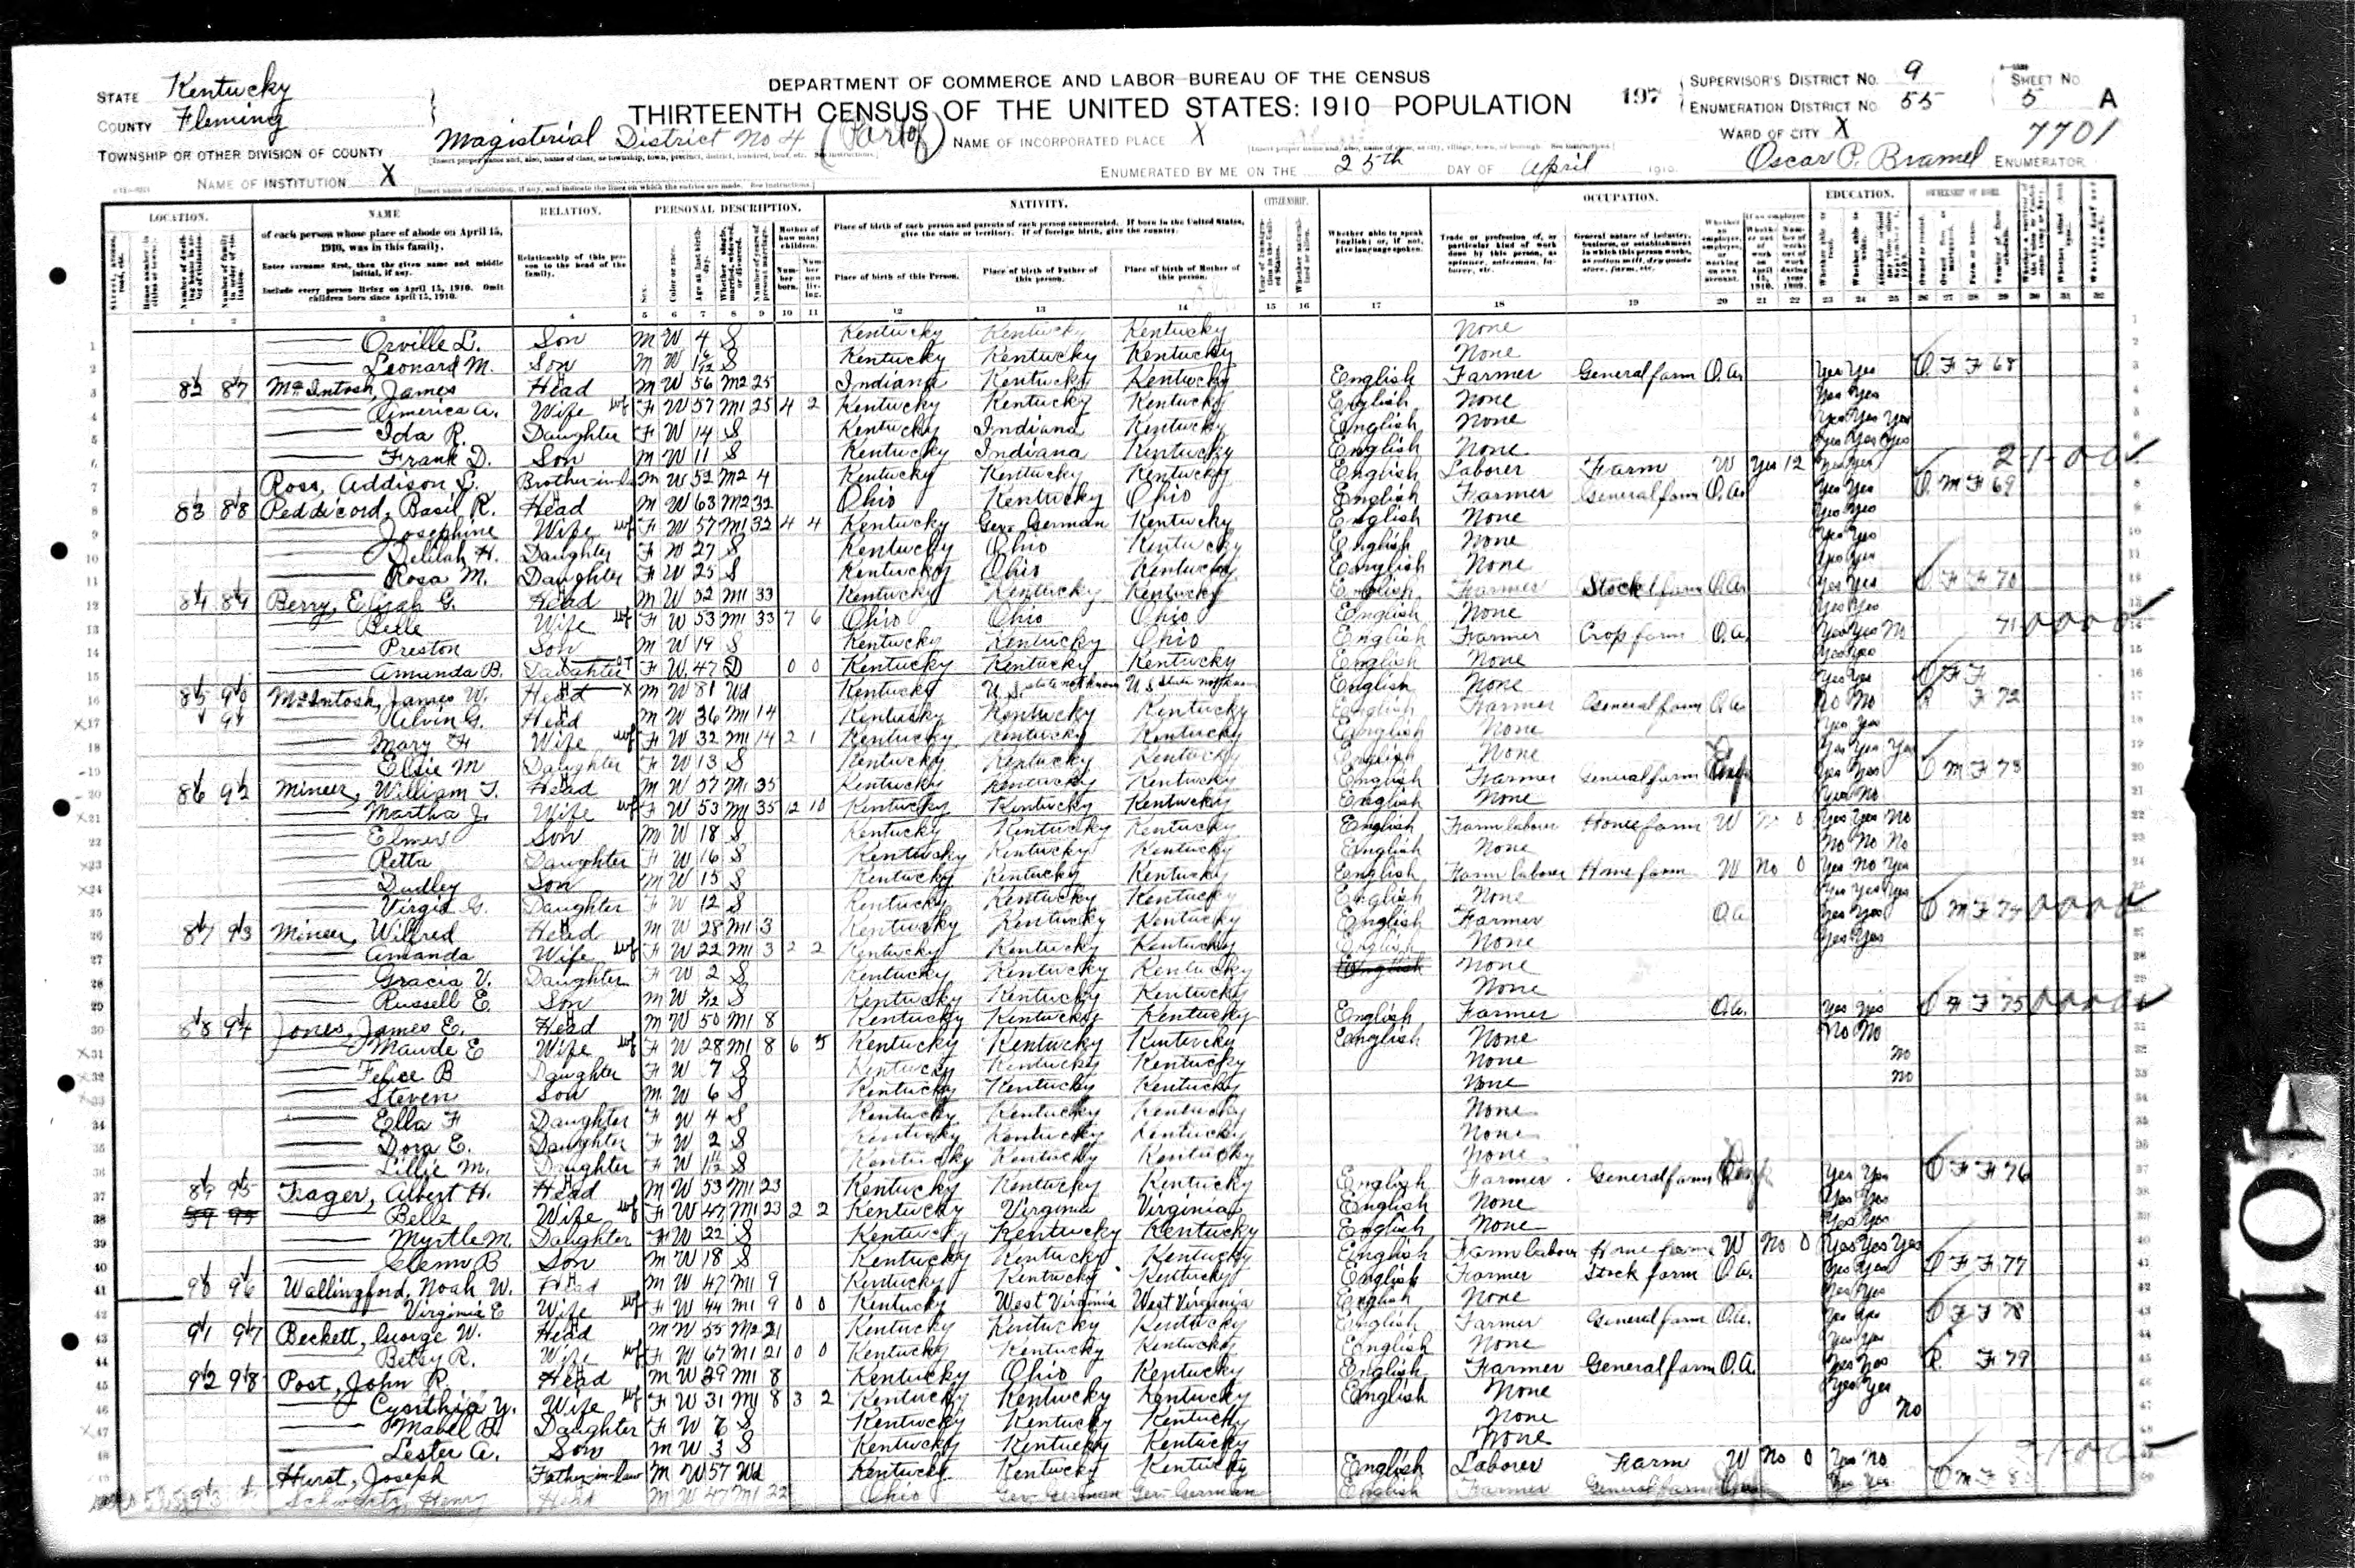 DEPARTMENT OF COMMERCE AND LABOR—BUREAU OF THE CENSUS
THIRTEENTH CENSUS OF THE UNITED STATES: 1910 POPULATION
STATE Kentucky
COUNTY Fleming
TOWNSHIP OR OTHER DIVISION OF COUNTY Magisterial District No 4 (Part of)
NAME OF INSTITUTION X
NAME OF INCORPORATED PLACE X
ENUMERATED BY ME ON THE 25th DAY OF April 1910
197
SUPERVISOR'S DISTRICT NO. 9
ENUMERATION DISTRICT NO. 55
SHEET NO 5 A
WARD OF CITY X
7701
Oscar P. Bramel ENUMERATOR
LOCATION. NAME RELATION. PERSONAL DESCRIPTION. NATIVITY. CITIZENSHIP. OCCUPATION. EDUCATION. OWNERSHIP OF HOME.
of each person whose place of abode on April 15, 1910, was in this family.
Enter surname first, then the given name and middle initial, if any.
Include every person living on April 15, 1910. Omit children born since April 15, 1910.
Relationship of this person to the head of the family.
Place of birth of each person and parents of each person enumerated. If born in the United States, give the state or territory. If of foreign birth, give the country.
Place of birth of this Person. Place of birth of Father of this person. Place of birth of Mother of this person.
1 2 3 4 5 6 7 8 9 10 11 12 13 14 15 16 17 18 19 20 21 22 23 24 25 26 27 28 29 30 31 32
Orville L. Son M W 4 S Kentucky Kentucky Kentucky None
Leonard M. Son M W S Kentucky Kentucky Kentucky None
82 87 McIntosh, James Head M W 56 M2 25 Indiana Kentucky Kentucky English Farmer General farm O.A. Yes Yes O F F 68
America A. Wife F W 57 M1 25 4 2 Kentucky Kentucky Kentucky English None Yes Yes
Ida R. Daughter F W 14 S Kentucky Indiana Kentucky English None Yes Yes Yes
Frank D. Son M W 11 S Kentucky Indiana Kentucky English None Yes Yes Yes
Ross, Addison Brother-in-l M W 52 M2 4 Kentucky Kentucky Kentucky English Laborer Farm W Yes 12 Yes Yes
83 88 Peddicord, Basil R. Head M W 63 M2 32 Ohio Kentucky Ohio English Farmer General farm O.A. Yes Yes O M F 69
Josephine Wife F W 57 M1 32 4 4 Kentucky Ger. German Kentucky English None Yes Yes
Delilah H. Daughter F W 27 S Kentucky Ohio Kentucky English None Yes Yes
Rosa M. Daughter F W 25 S Kentucky Ohio Kentucky English None Yes Yes
84 89 Berry, Elijah G. Head M W 52 M1 33 Kentucky Kentucky Kentucky English Farmer Stock farm O.A. Yes Yes O F F 70
Belle Wife F W 53 M1 33 7 6 Ohio Ohio Ohio English None Yes Yes
Preston Son M W 19 S Kentucky Kentucky Ohio English Farmer Crop farm O.A. Yes Yes No 71
Amanda B. Daughter F W 47 D 0 0 Kentucky Kentucky Kentucky English None Yes Yes
85 90 McIntosh, James W. Head M W 81 Wd Kentucky U.S. state not known U.S. state not known English None Yes Yes O F F
91 Kelvin G. Head M W 36 M1 14 Kentucky Kentucky Kentucky English Farmer General farm O.A. No No R F 72
Mary F Wife F W 32 M1 14 2 1 Kentucky Kentucky Kentucky English None Yes Yes
Elsie M Daughter F W 13 S Kentucky Kentucky Kentucky English None Yes Yes Yes
86 92 Mineer, William T. Head M W 57 M1 35 Kentucky Kentucky Kentucky English Farmer General farm Emp Yes Yes O M F 73
Martha J. Wife F W 53 M1 35 12 10 Kentucky Kentucky Kentucky English None Yes No
Elmer Son M W 18 S Kentucky Kentucky Kentucky English Farm labor Home farm W No 0 Yes Yes No
Retta Daughter F W 16 S Kentucky Kentucky Kentucky English None No No No
Dudley Son M W 15 S Kentucky Kentucky Kentucky English Farm laborer Home farm W No 0 Yes No Yes
Virgie G. Daughter F W 12 S Kentucky Kentucky Kentucky English None Yes Yes Yes
87 93 Mineer, Wilfred Head M W 28 M1 3 Kentucky Kentucky Kentucky English Farmer O.A. Yes Yes O M F 74
Amanda Wife F W 22 M1 3 2 2 Kentucky Kentucky Kentucky English None Yes Yes
Gracia V. Daughter F W 2 S Kentucky Kentucky Kentucky English None
Russell E. Son M W S Kentucky Kentucky Kentucky None
88 94 Jones, James E. Head M W 50 M1 8 Kentucky Kentucky Kentucky English Farmer O.A. Yes Yes O F F 75
Maude E Wife F W 28 M1 8 6 5 Kentucky Kentucky Kentucky English None No No
Felice B Daughter F W 7 S Kentucky Kentucky Kentucky None No
Steven Son M W 6 S Kentucky Kentucky Kentucky None No
Ella F Daughter F W 4 S Kentucky Kentucky Kentucky None
Dora E. Daughter F W 2 S Kentucky Kentucky Kentucky None
Lillie M. Daughter F W S Kentucky Kentucky Kentucky None
89 95 Albert H. Head M W 53 M1 23 Kentucky Kentucky Kentucky English Farmer General farm Yes Yes O F F 76
89 95 Belle Wife F W 47 M1 23 2 2 Kentucky Virginia Virginia English None Yes Yes
Myrtle M. Daughter F W 22 S Kentucky Kentucky Kentucky English None Yes Yes
Glenn B Son M W 18 S Kentucky Kentucky Kentucky English Farm labor Home farm W No 0 Yes Yes Yes
90 96 Wallingford, Noah W. Head M W 47 M1 9 Kentucky Kentucky Kentucky English Farmer Stock farm O.A. Yes Yes O F F 77
Virginia E Wife F W 44 M1 9 0 0 Kentucky West Virginia West Virginia English None Yes Yes
91 97 Beckett, George W. Head M W 55 M2 21 Kentucky Kentucky Kentucky English Farmer General farm O.A. Yes Yes O F F 78
Betsy R. Wife F W 67 M1 21 0 0 Kentucky Kentucky Kentucky English None Yes Yes
92 98 Post, John R. Head M W 29 M1 8 Kentucky Ohio Kentucky English Farmer General farm O.A. Yes Yes R F 79
Cynthia Y. Wife F W 31 M1 8 3 2 Kentucky Kentucky Kentucky English None Yes Yes
Mabel B. Daughter F W 6 S Kentucky Kentucky Kentucky None No
Lester A. Son M W 3 S Kentucky Kentucky Kentucky None
Hurst, Joseph Father-in-law M W 57 Wd Kentucky Kentucky Kentucky English Laborer Farm W No 0 Yes No
Schwartz, Henry Head M W 47 M1 22 Ohio Ger. German Ger. German English Farmer General farm Yes Yes O M F
101